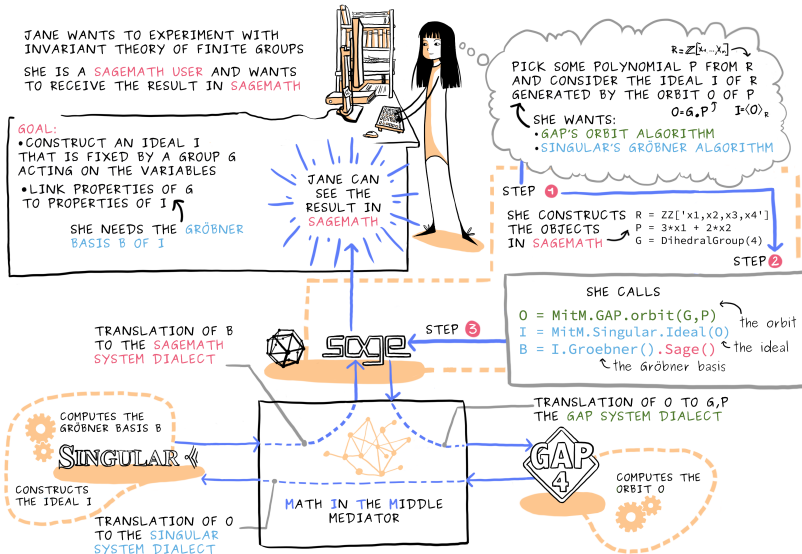 JANE WANTS TO EXPERIMENT WITH
INVARIANT THEORY OF FINITE GROUPS
SHE IS A SAGEMATH USER AND WANTS
TO RECEIVE THE RESULT IN SAGEMATH
GOAL:
•CONSTRUCT AN IDEAL I
THAT IS FIXED BY A GROUP G
ACTING ON THE VARIABLES
•LINK PROPERTIES OF G
TO PROPERTIES OF I
SHE NEEDS THE GRÖBNER
BASIS B OF I
JANE CAN
SEE THE
RESULT IN
SAGEMATH
R=ℤ[X₁,...,Xₙ]
PICK SOME POLYNOMIAL P FROM R
AND CONSIDER THE IDEAL I OF R
GENERATED BY THE ORBIT O OF P
O=G.P I=⟨O⟩R
SHE WANTS:
•GAP'S ORBIT ALGORITHM
•SINGULAR'S GRÖBNER ALGORITHM
STEP 1
SHE CONSTRUCTS
THE OBJECTS
IN SAGEMATH
R = ZZ['x1,x2,x3,x4']
P = 3*x1 + 2*x2
G = DihedralGroup(4)
STEP 2
SHE CALLS
O = MitM.GAP.orbit(G,P)
I = MitM.Singular.Ideal(O)
B = I.Groebner().Sage()
the orbit
the ideal
the Gröbner basis
STEP 3
sage
TRANSLATION OF B
TO THE SAGEMATH
SYSTEM DIALECT
TRANSLATION OF O TO G,P
THE GAP SYSTEM DIALECT
COMPUTES THE
GRÖBNER BASIS B
SINGULAR
CONSTRUCTS
THE IDEAL I
MATH IN THE MIDDLE
MEDIATOR
GAP
4
COMPUTES THE
ORBIT O
TRANSLATION OF O
TO THE SINGULAR
SYSTEM DIALECT